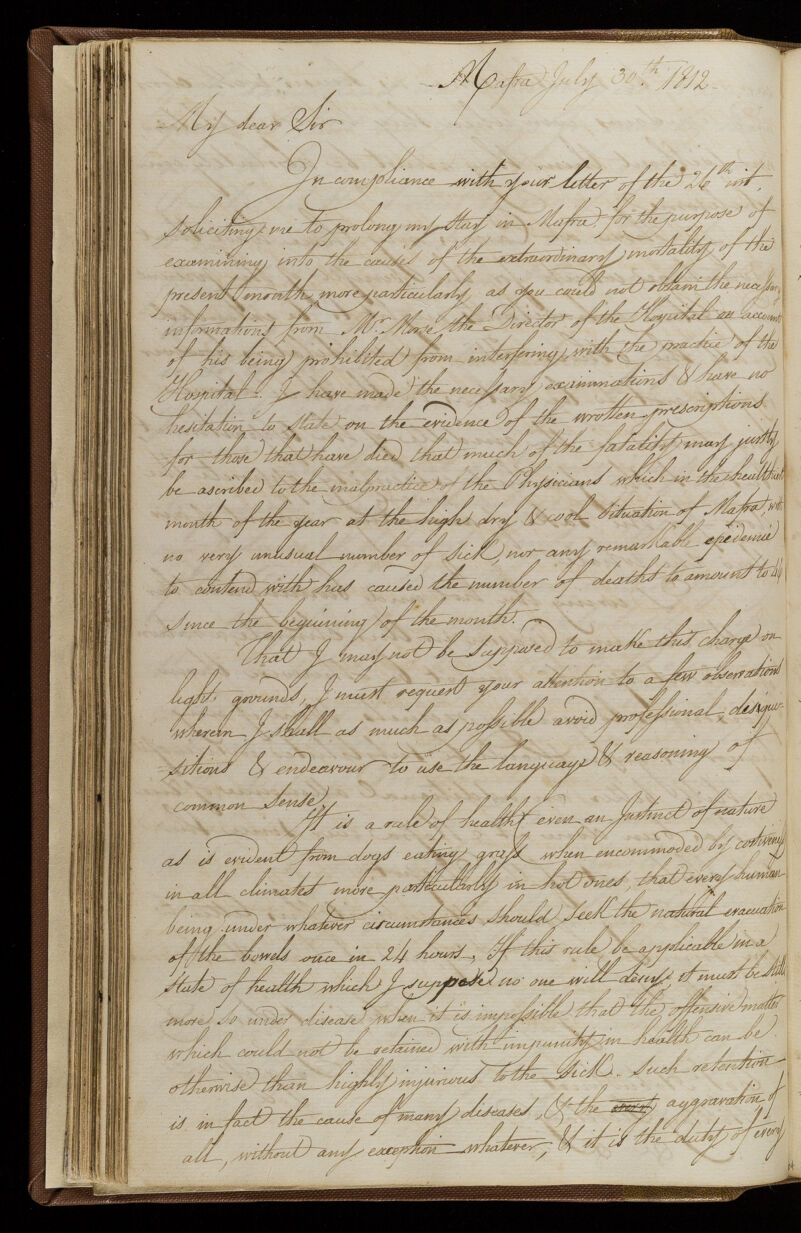 Mafra July 30th 1812
My dear Sir
In compliance with your letter of the 26th inst.
soliciting me to prolong my stay in Mafra for the purpose of
examining into the causes of the extraordinary mortality of the
present month, more particularly as you could not obtain the necessary
informations from Mr. Morse the Director of the Hospital on account
of his being prohibited from interfering with the practice of the
Hospital. I have made the necessary examinations & have no
hesitation to state on the evidence of the written prescriptions
for those that have died that much of the fatality may justly
be ascribed to the malpractice of the Physicians which in the healthiest
month of the year at the high dry & cool situation of Mafra, with
no very unusual number of sick, nor any remarkable epidemic
to contend with has caused the number of deaths to amount to 44
since the beginning of the month.
That I may not be supposed to make this charge on
light grounds, I must request your attention to a few observations
wherein I shall as much as possible avoid professional disqui-
sitions & endeavour to use the language & reasoning of
common sense.
It is a rule of health & even an Instinct of nature
as is evident from dogs eating grass when encommoded by costiveness
in all climates more particularly in hot ones, that every human
being under whatever circumstances should seek the natural evacuation
of the bowels once in 24 hours. If this rule be applicable in a
state of health which I suppose no one will deny, it must be still
more so under disease when it is impossible that the offensive matter
which could not be retained with impunity in health can be
otherwise than highly injurious to the sick. Such retention
is in fact the cause of many diseases, & the aggravation of
all, without any exception whatever, & it is the duty of every